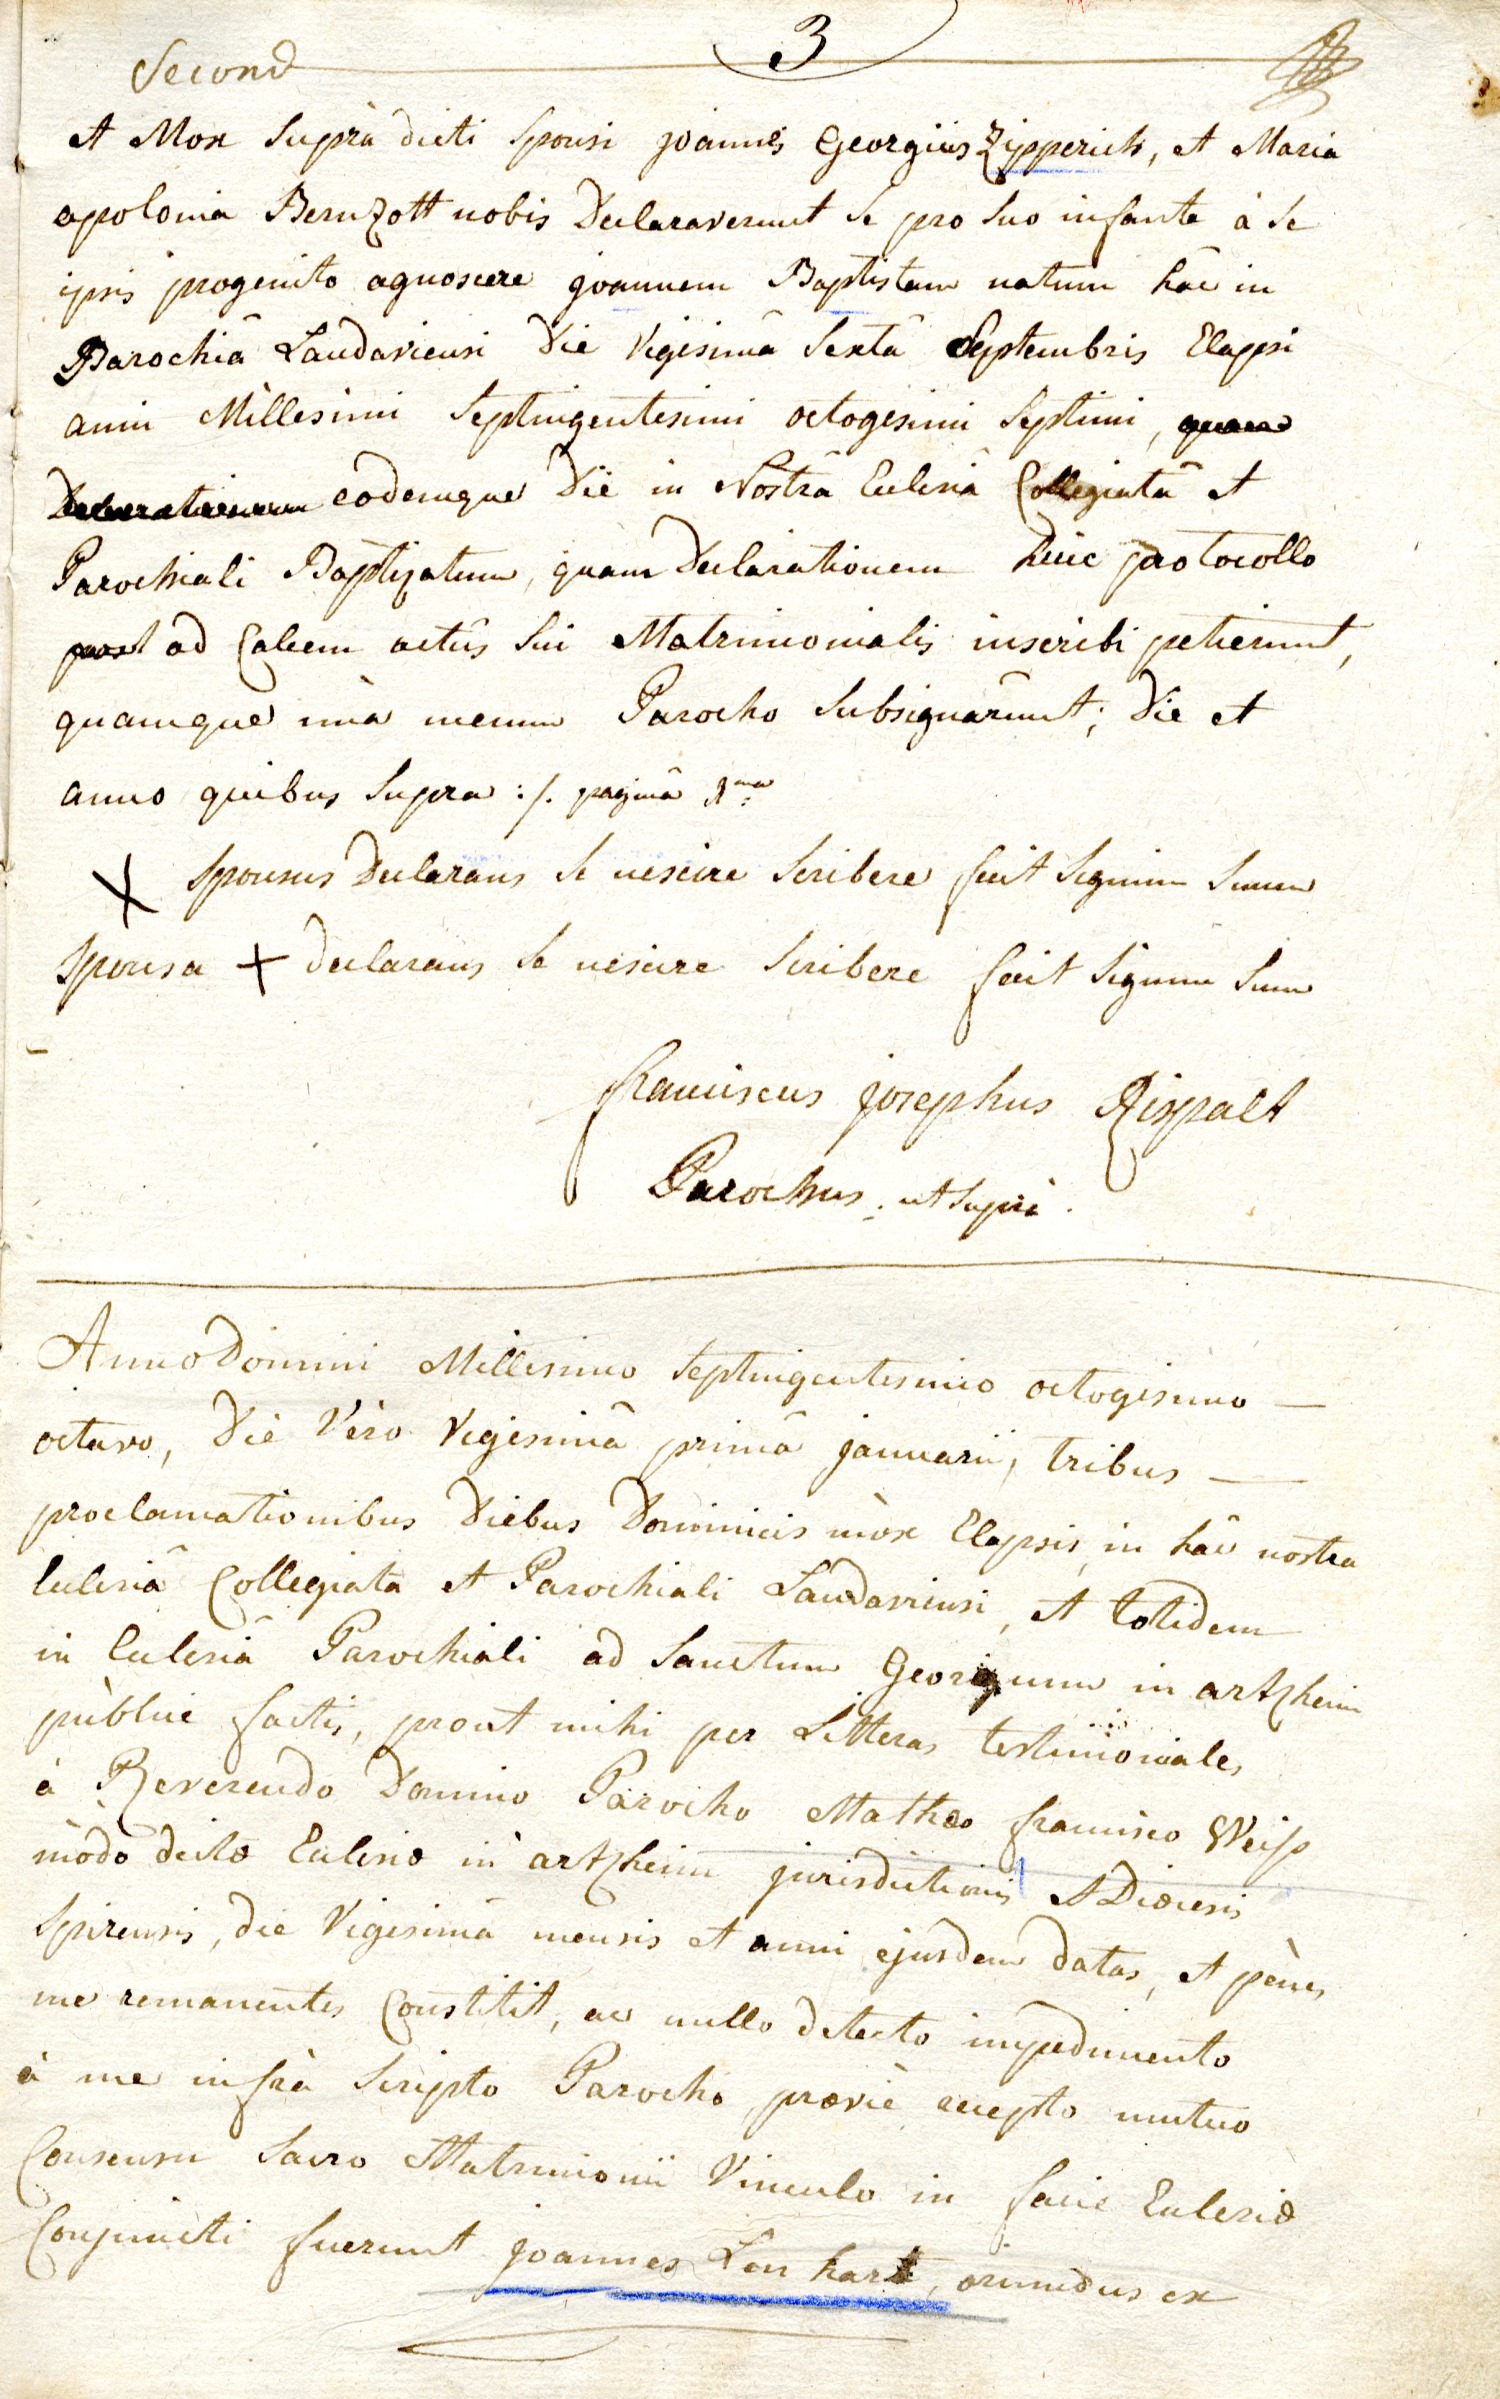 Second
3
et Mox suprà dicti sponsi joannes Georgius Zipperich, et Maria
apolonia Bernzott nobis Declaraverunt se pro suo infante à se
ipsis progenito agnoscere joannem Baptistam natum hâc in
Parochiâ Landaviensi die vigesimâ sextâ Septembris Elapsi
anni Millesimi septingentesimi octogesimi septimi, quam
Declarationem eodemque die in Nostrâ Ecclesiâ Collegiatâ et
Parochiali Baptizatum, quam Declarationem huic protocollo
post ad Calcem actûs sui Matrimonialis inscribi petierunt,
quamque unà mecum Parocho subsignârunt; die et
anno quibus supra :/. paginâ 1ma
X sponsus Declarans se nescire scribere fecit signum suum
sponsa + declarans se nescire scribere fecit signum suum
franciscus josephus Rispalt
Parochus ut suprà.
Anno Domini Millesimo septingentesimo octogesimo —
octavo, die Verò vigesimâ primâ januarii, tribus —
proclamationibus diebus Dominicis mòx Elapsis, in hâc nostra
Ecclesiâ Collegiata et Parochiali Landaviensi, et totidem
in Ecclesiâ Parochiali ad sanctum Georgium in artzheim
pùblice factis, prout mihi per Litteras testimoniales
à Reverendo Domino Parocho Mathæo francisco Weiss
mòdo dictæ Ecclesiæ in artzheim jurisdictionis et Diœcesis
spirensis, die vigesimâ mensis et anni ejusdem datas, et pènes
me remanentes Constitit, ac nullo detecto impedimento
à me infrà scripto Parocho præviè accepto mutuo
Consensu sacro Matrimonii Vinculo in facie Ecclesiæ
Conjuncti fuerunt joannes Lenhart, oriundus ex